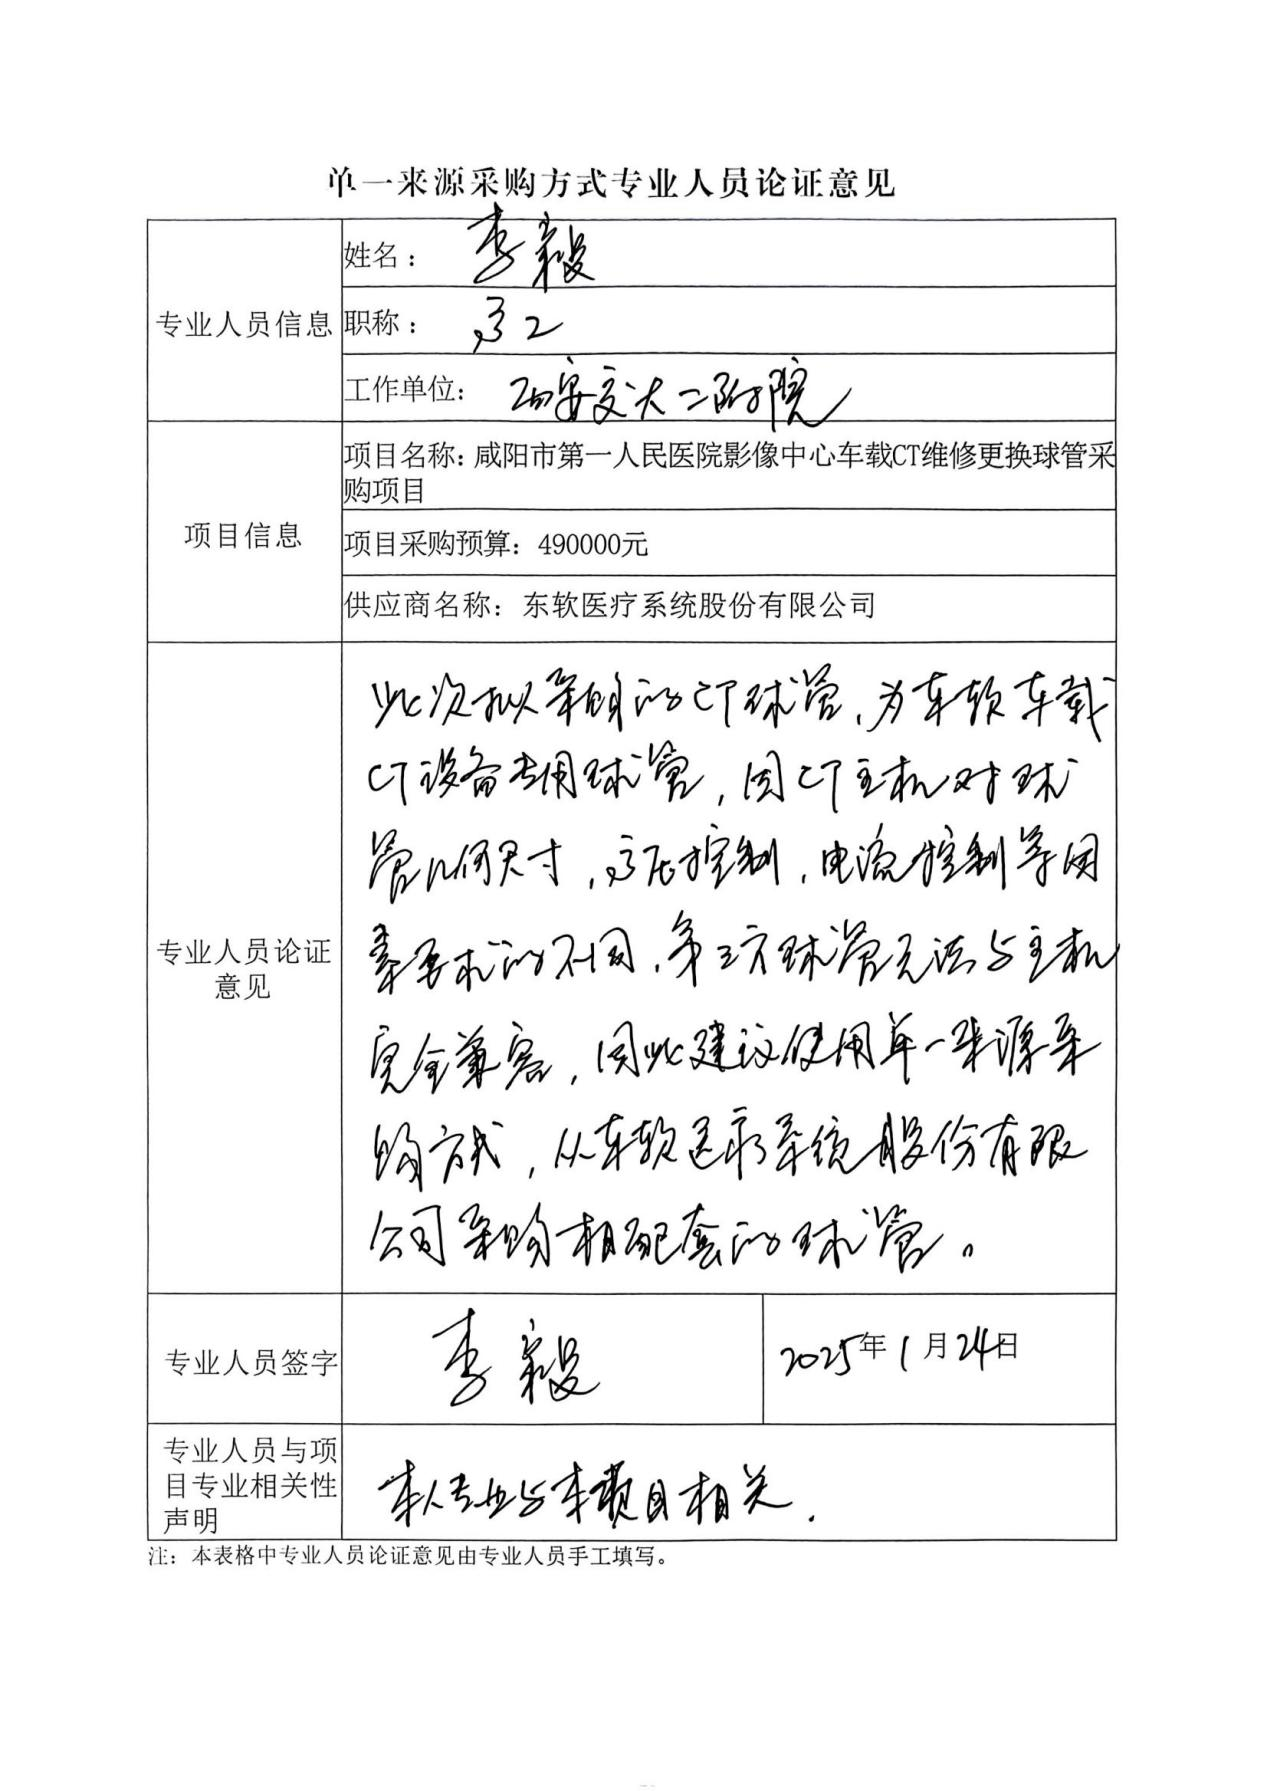 单一来源采购方式专业人员论证意见
专业人员信息
姓名： 李毅
职称： 高工
工作单位： 西安交大二附院
项目信息
项目名称：咸阳市第一人民医院影像中心车载CT维修更换球管采
购项目
项目采购预算：490000元
供应商名称：东软医疗系统股份有限公司
专业人员论证
意见
此次拟采购的CT球管，为东软车载
CT设备专用球管，因CT主机对球
管几何尺寸，高压控制，电流控制等因
素要求的不同，第三方球管无法与主机
完全兼容，因此建议使用单一来源采
购方式，从东软医疗系统股份有限
公司采购相配套的球管。
专业人员签字
李毅
2025年1月24日
专业人员与项
目专业相关性
声明
本人专业与本项目相关.
注：本表格中专业人员论证意见由专业人员手工填写。